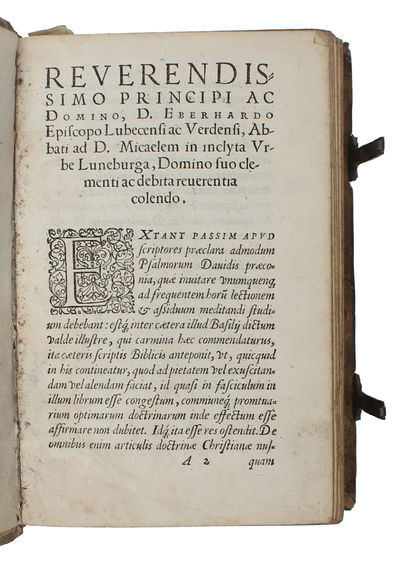 REVERENDIS-
SIMO PRINCIPI AC
DOMINO, D. EBERHARDO
Episcopo Lubecensi ac Verdensi, Ab-
bati ad D. Micaelem in inclyta Vr-
be Luneburga, Domino suo cle-
menti ac debita reuerentia
colendo.
EXTANT PASSIM APVD
scriptores præclara admodum
Psalmorum Dauidis præco-
nia, quæ inuitare vnumquenq;
ad frequentem horũ lectionem
& assiduum meditandi studi-
um debebant: estq́; inter cætera illud Basilij dictum
valde illustre, qui carmina hæc commendaturus,
ita cæteris scriptis Biblicis anteponit, vt, quicquid
in his contineatur, quod ad pietatem vel exuscitan-
dam vel alendam faciat, id quasi in fasciculum in
illum librum esse congestum, communeq́; promtua-
rium optimarum doctrinarum inde effectum esse
affirmare non dubitet. Idq́; ita esse res ostendit. De
omnibus enim articulis doctrinæ Christianæ nus-
A 2 quam